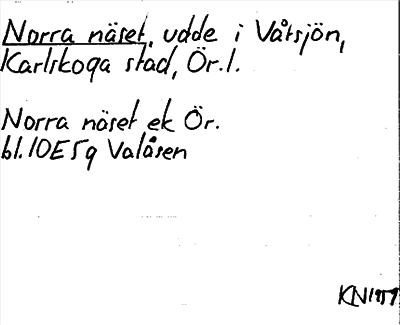 Norra näset, udde i Våtsjön,
Karlskoga stad, Ör.l.
Norra näset ek Ör.
bl.10E5g Valåsen
KN1959